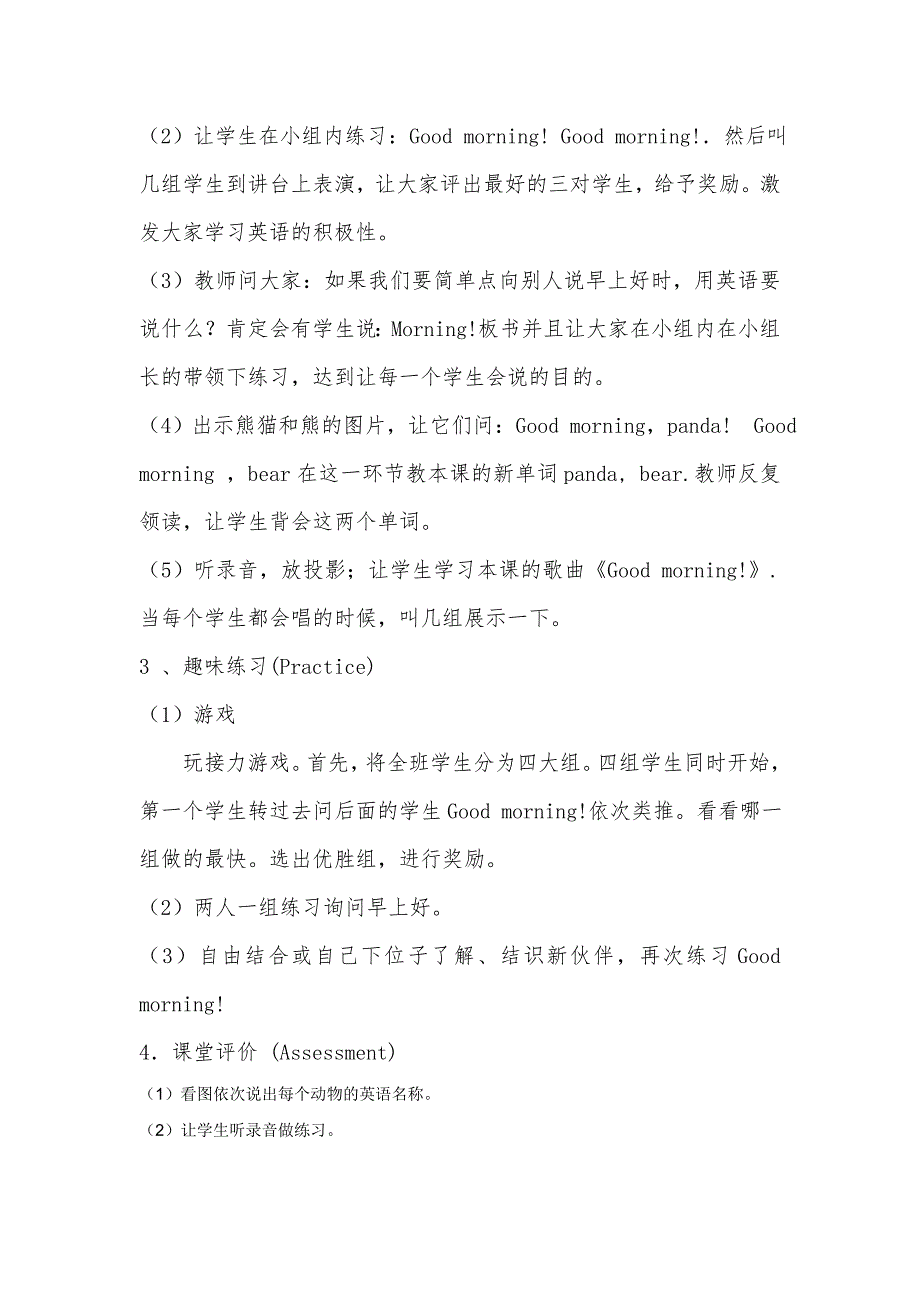 （2）让学生在小组内练习：Good morning! Good morning!. 然后叫
几组学生到讲台上表演，让大家评出最好的三对学生，给予奖励。激
发大家学习英语的积极性。
（3）教师问大家：如果我们要简单点向别人说早上好时，用英语要
说什么？肯定会有学生说：Morning!板书并且让大家在小组内在小组
长的带领下练习，达到让每一个学生会说的目的。
（4）出示熊猫和熊的图片，让它们问：Good morning，panda!  Good
morning ，bear 在这一环节教本课的新单词 panda，bear.教师反复
领读，让学生背会这两个单词。
（5）听录音，放投影；让学生学习本课的歌曲《Good morning!》.
当每个学生都会唱的时候，叫几组展示一下。
3 、趣味练习(Practice)
（1）游戏
玩接力游戏。首先，将全班学生分为四大组。四组学生同时开始，
第一个学生转过去问后面的学生 Good morning!依次类推。看看哪一
组做的最快。选出优胜组，进行奖励。
（2）两人一组练习询问早上好。
（3）自由结合或自己下位子了解、结识新伙伴，再次练习 Good
morning!
4．课堂评价 (Assessment)
（1）看图依次说出每个动物的英语名称。
（2）让学生听录音做练习。